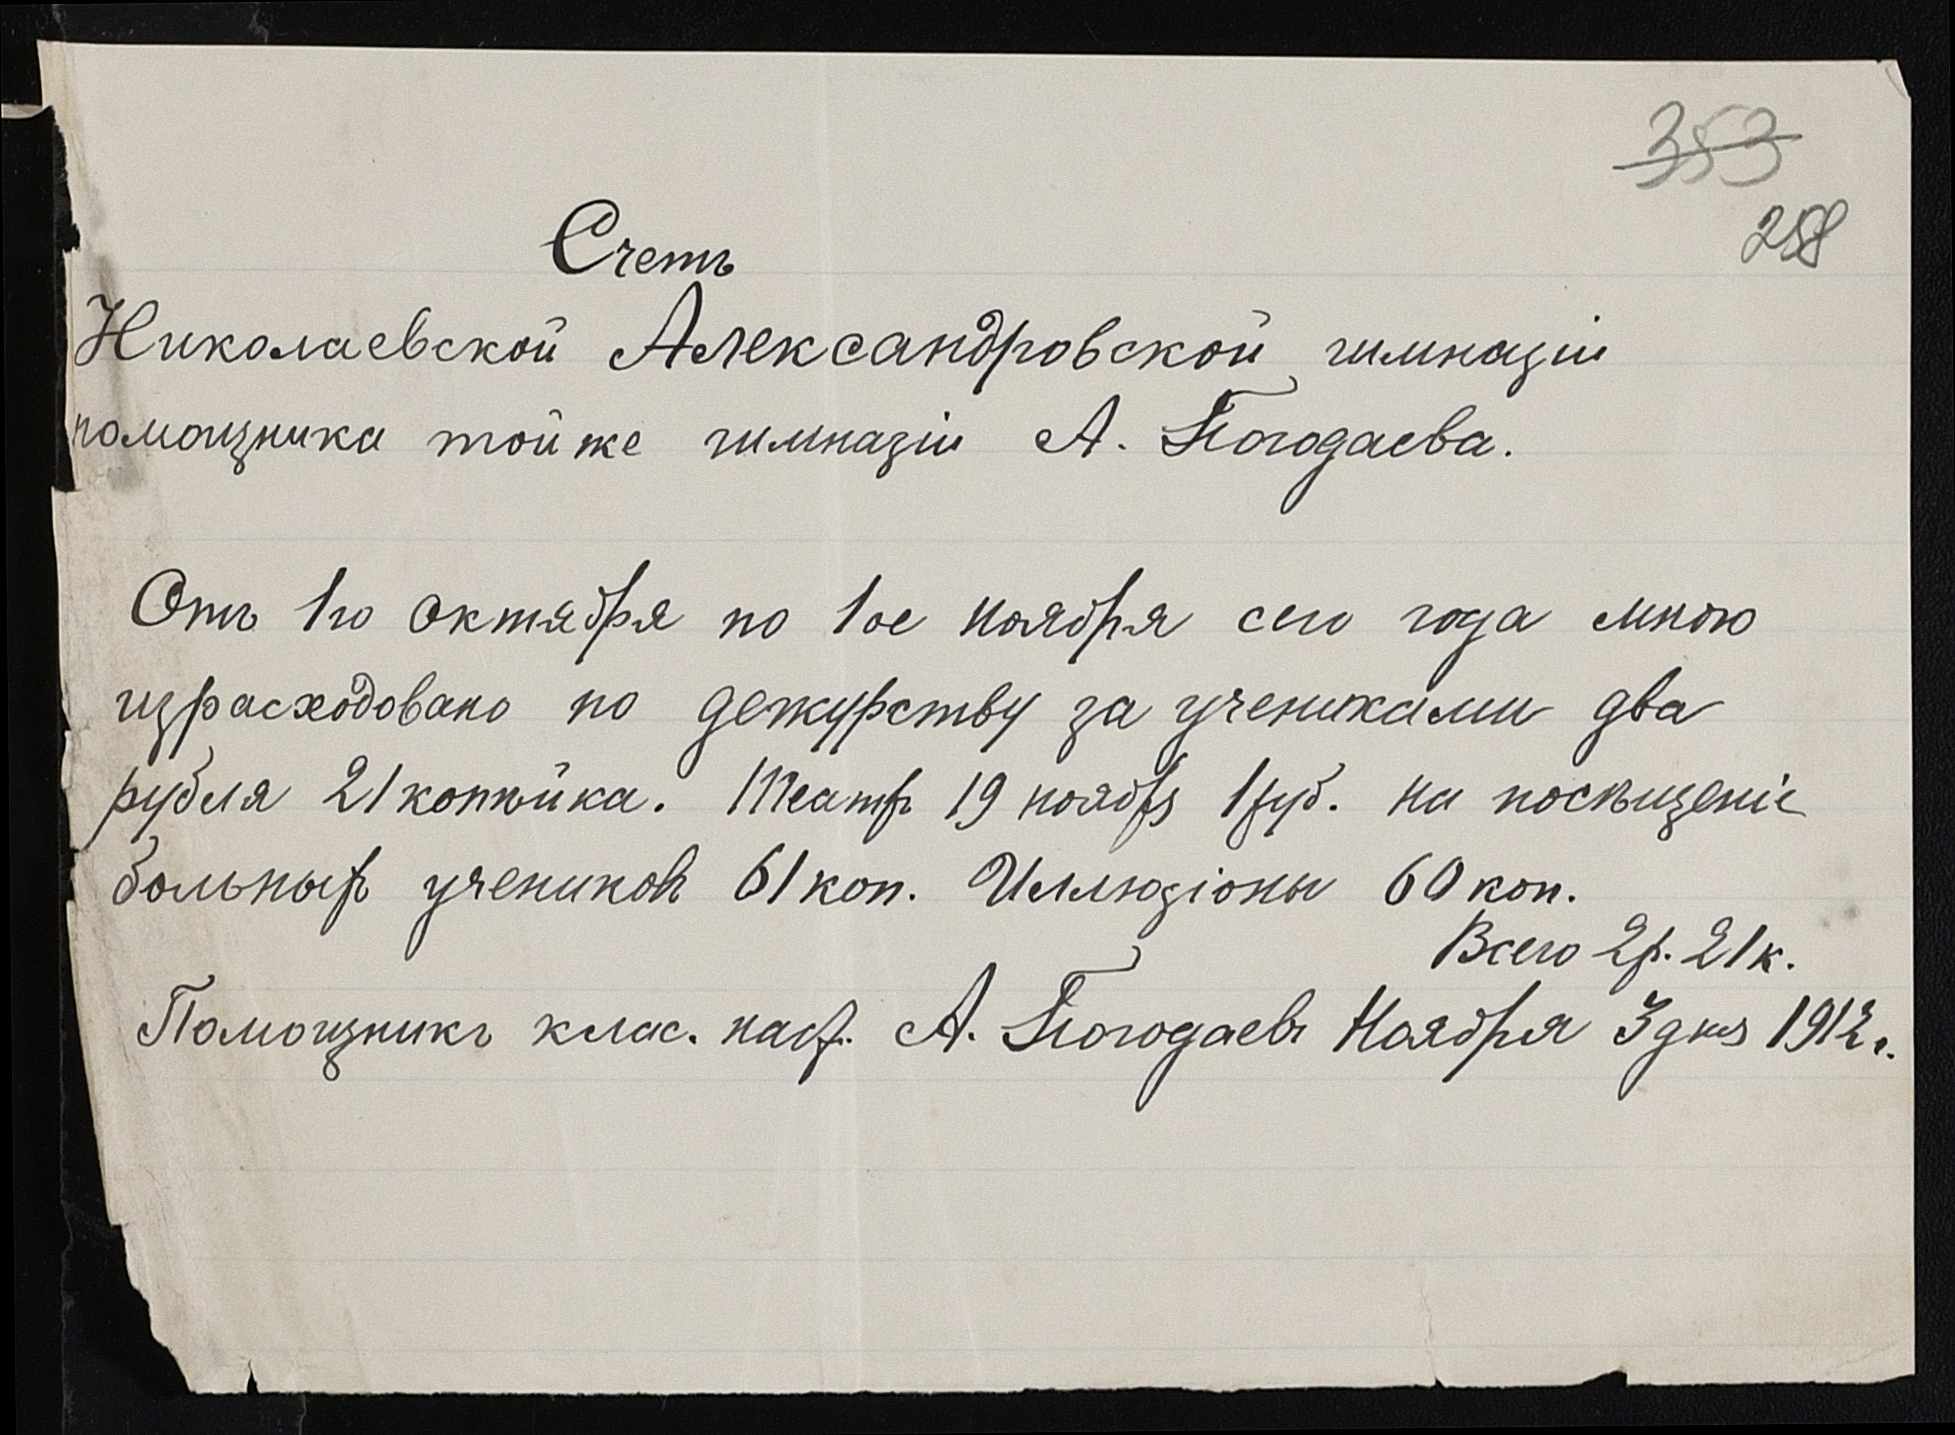 353
258
Счетъ
Николаевской Александровской гимназіи
помощника той же гимназіи А. Погодаева.
Отъ 1го Октября по 1ое ноября сего года мною
израсходовано по дежурству за учениками два
рубля 21 копѣйка. Театръ 19 ноября 1 руб. на посѣщеніе
больныхъ учениковъ 61 коп. Иллюзіоны 60 коп.
Всего 2 р. 21 к.
Помощникъ клас. наст. А. Погодаевъ Ноября 3 дня 1912 г.